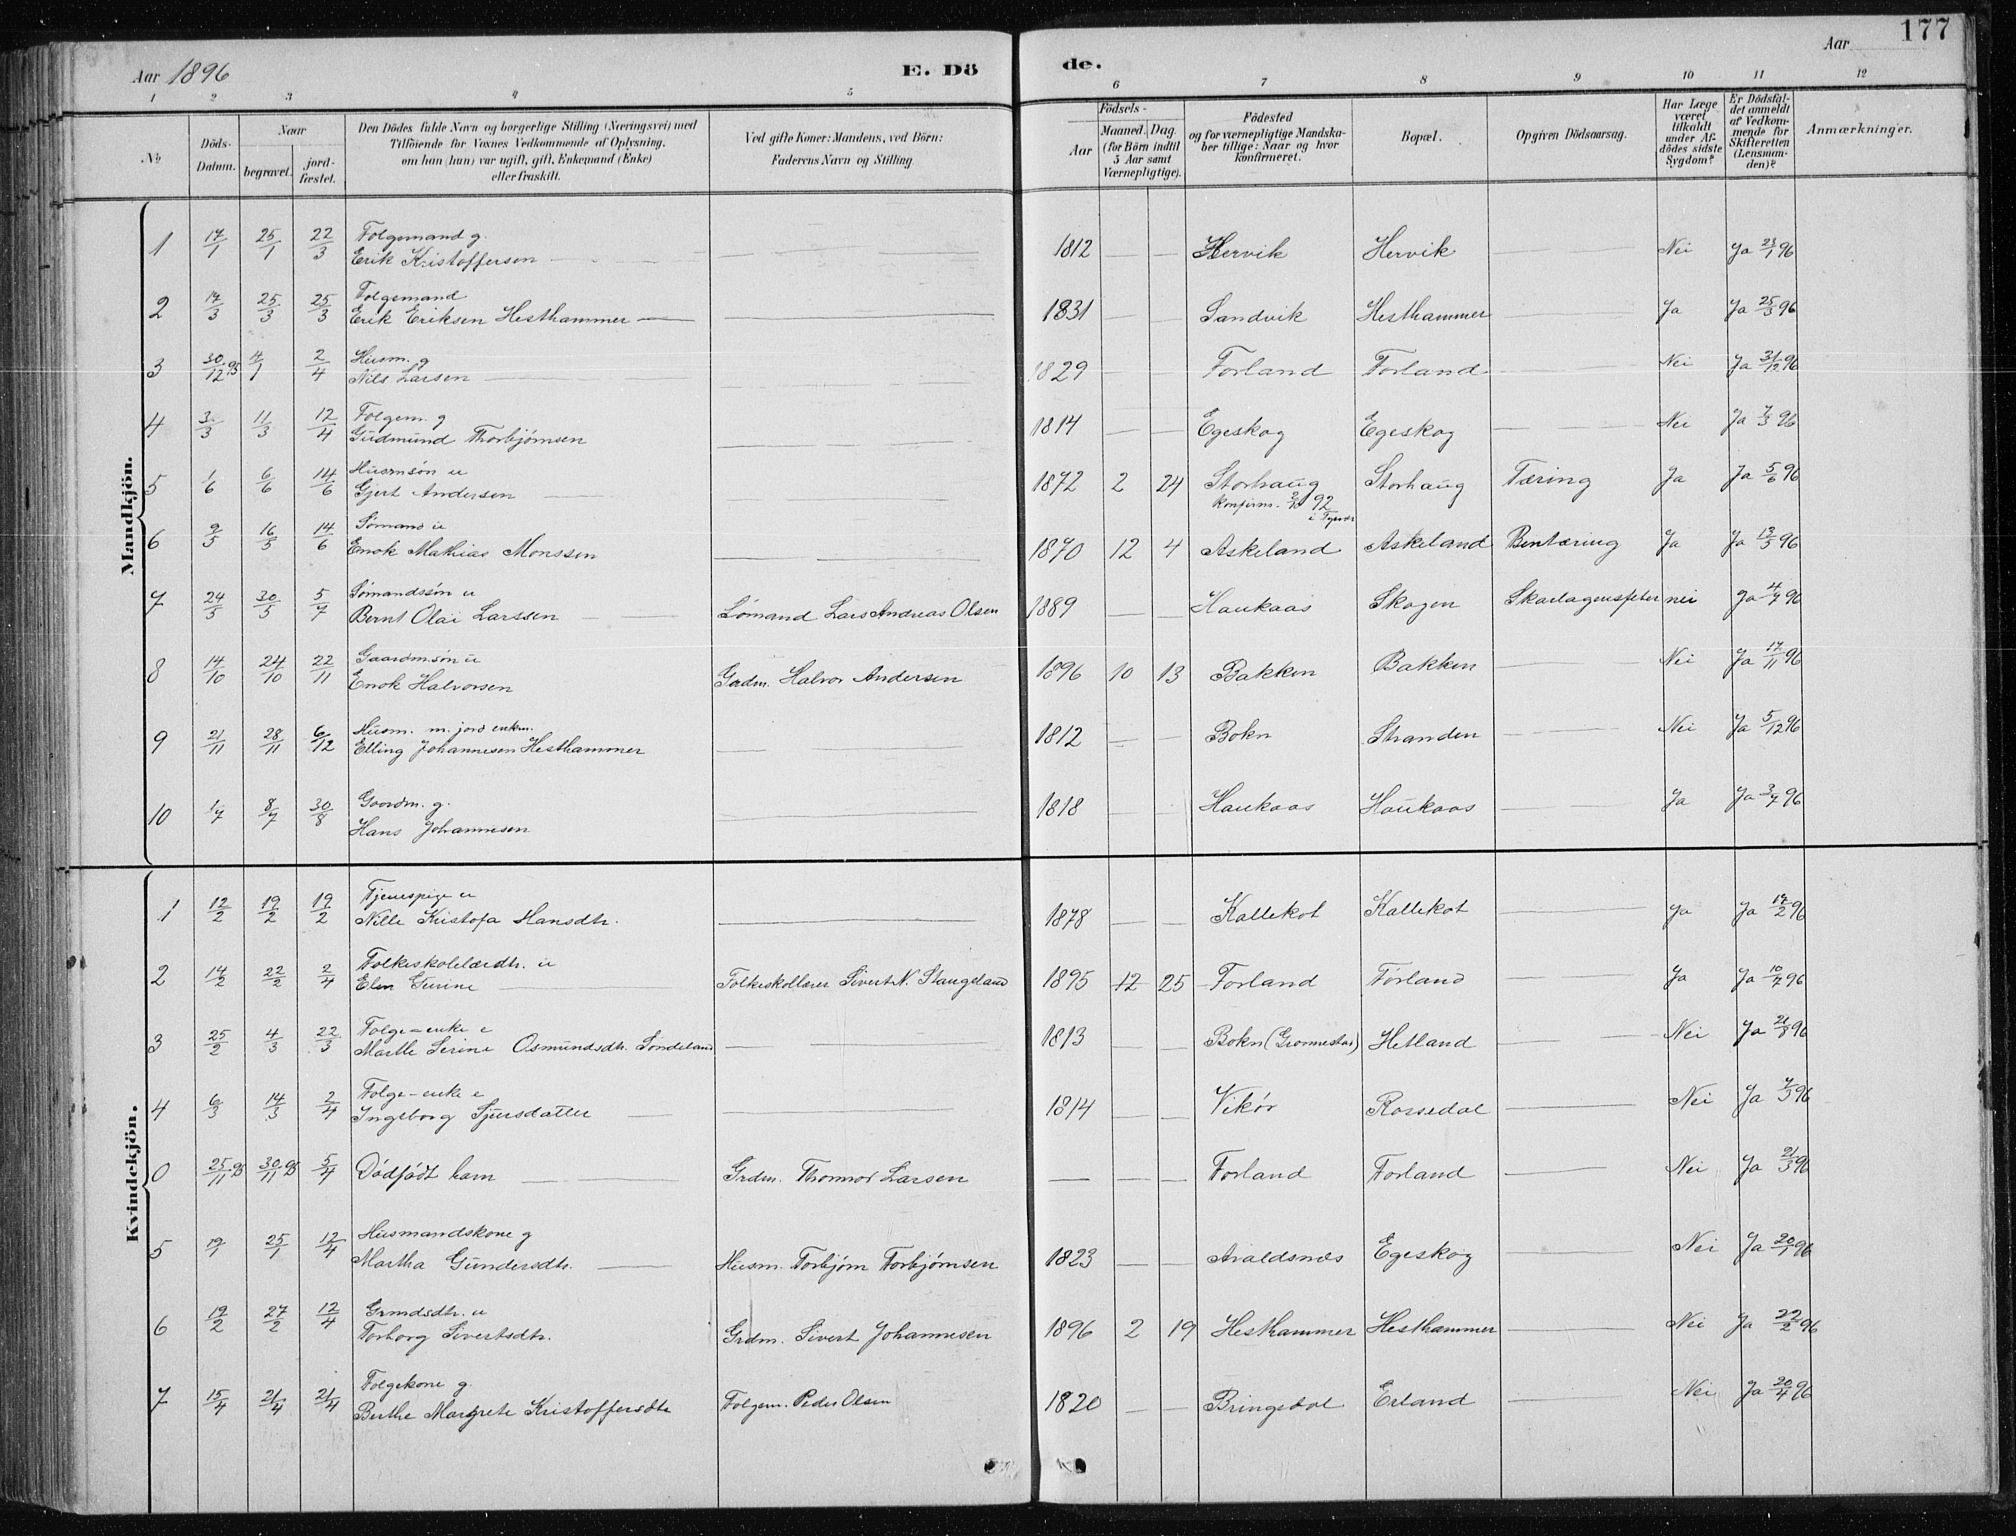 177
Aar 1896 E. Dö de. Aar
1 2 3 4 5 6 7 8 9 10 11 12
No
Döds-Datum.
Naar
begravet.
jord-fæstet.
Den Dödes fulde Navn og borgerlige Stilling (Næringsvei) med
Tilföiende for Voxnes Vedkommende af Oplysning,
om han (hun) var ugift, gift, Enkemand (Enke)
eller fraskilt.
Ved gifte Koner: Mandens, ved Börn:
Faderens Navn og Stilling.
Födsels-
Aar
Maaned. Dag.
(for Börn indtil
5 Aar samt
Værnepligtige).
Födested
og for værnepligtige Mandska-
ber tillige: Naar og hvor
konfirmeret.
Bopæl.
Opgiven Dödsaarsag.
Har Læge
været
tilkaldt
under Af-
dödes sidste
Sygdom?
Er Dödsfal-
det anmeldt
af Vedkom-
mende for
Skifteretten
(Lensman-
den)?
Anmærkninger.
Mandkjön.
Folgemand g.
1 17/1 25/1 22/3 Erik Kristoffersen 1812 Hervik Hervik Nei Ja 23/1 96
Folgemand
2 17/3 25/3 25/3 Erik Eriksen Hesthammer 1831 Sandvik Hesthammer Ja Ja 25/3 96
Husm. g
3 30/12 95 4/1 2/4 Nils Larsen 1829 Forland Forland Nei Ja 31/12 96
Folgem. g
4 3/3 11/3 12/4 Gudmund Thorbjørnsen 1814 Egeskog Egeskog Nei Ja 7/3 96
Husmsøn u
5 1/6 6/6 14/6 Gjert Andersen 1872 2 24 Storhaug Storhaug Tæring Ja Ja 5/6 96
Konfirm. 92
i Tysvær
Sømand u
6 9/5 16/5 14/6 Enok Mathias Monssen 1870 12 4 Askeland Askeland Bentæring Ja Ja 13/5 96
Sømandssøn u
7 24/5 30/5 5/7 Bernt Olai Larssen Sømand Lars Andreas Olsen 1889 Haukaas Skogen Skarlagensfeber nei Ja 4/7 96
Gaardmsøn u
8 14/10 24/10 22/11 Enok Halvorsen Gadm. Halvor Andersen 1896 10 13 Bakken Bakken Nei Ja 17/11 96
Husm. m. jord enkm.
9 21/11 28/11 6/12 Elling Johannesen Hesthammer 1812 Bokn Stranden Nei Ja 5/12 96
Gaardm. g.
10 1/7 8/7 30/8 Hans Johannesen 1818 Haukaas Haukaas Ja Ja 3/7 96
Kvindekjön.
Tjenespige u
1 12/2 19/2 19/2 Nille Kristofa Hansdtr. 1878 Kallekot Kallekot Ja Ja 17/2 96
Folkeskolelærdtr. u
2 14/2 22/2 2/4 Elen Surine Folkeskollærer Sivert N. Stangeland 1895 12 25 Forland Førland Ja Ja 10/7 96
Folge-enke e
3 25/2 4/3 22/3 Marthe Serine Osmundsdtr. Søndeland 1813 Bokn (Gronnestad) Hetland Nei Ja 21/8 96
Folge-enke e
4 6/3 14/3 2/4 Ingeborg Sjursdatter 1814 Vikør Rossedal Nei Ja 7/3 96
0 25/11 95 30/11 95 5/4 Dødfødt barn Grdm. Thormod Larsen Forland Forland Nei Ja 21/3 96
Husmandskone g
5 19/1 25/1 12/4 Martha Gundersdtr. Husm. Torbjørn Torbjørnsen 1823 Avaldsnæs Egeskog Nei Ja 20/1 96
Grmdsdtr. u
6 19/2 27/2 12/4 Torborg Sivertsdtr. Grdm. Sivert Johannesen 1896 2 19 Hesthammer Hesthammer Nei Ja 22/2 96
Folgekone g.
7 15/4 21/4 21/4 Berthe Margrete Kristoffersdtr Folgem. Peder Olsen 1820 Bringedal Erland Nei Ja 20/4 96